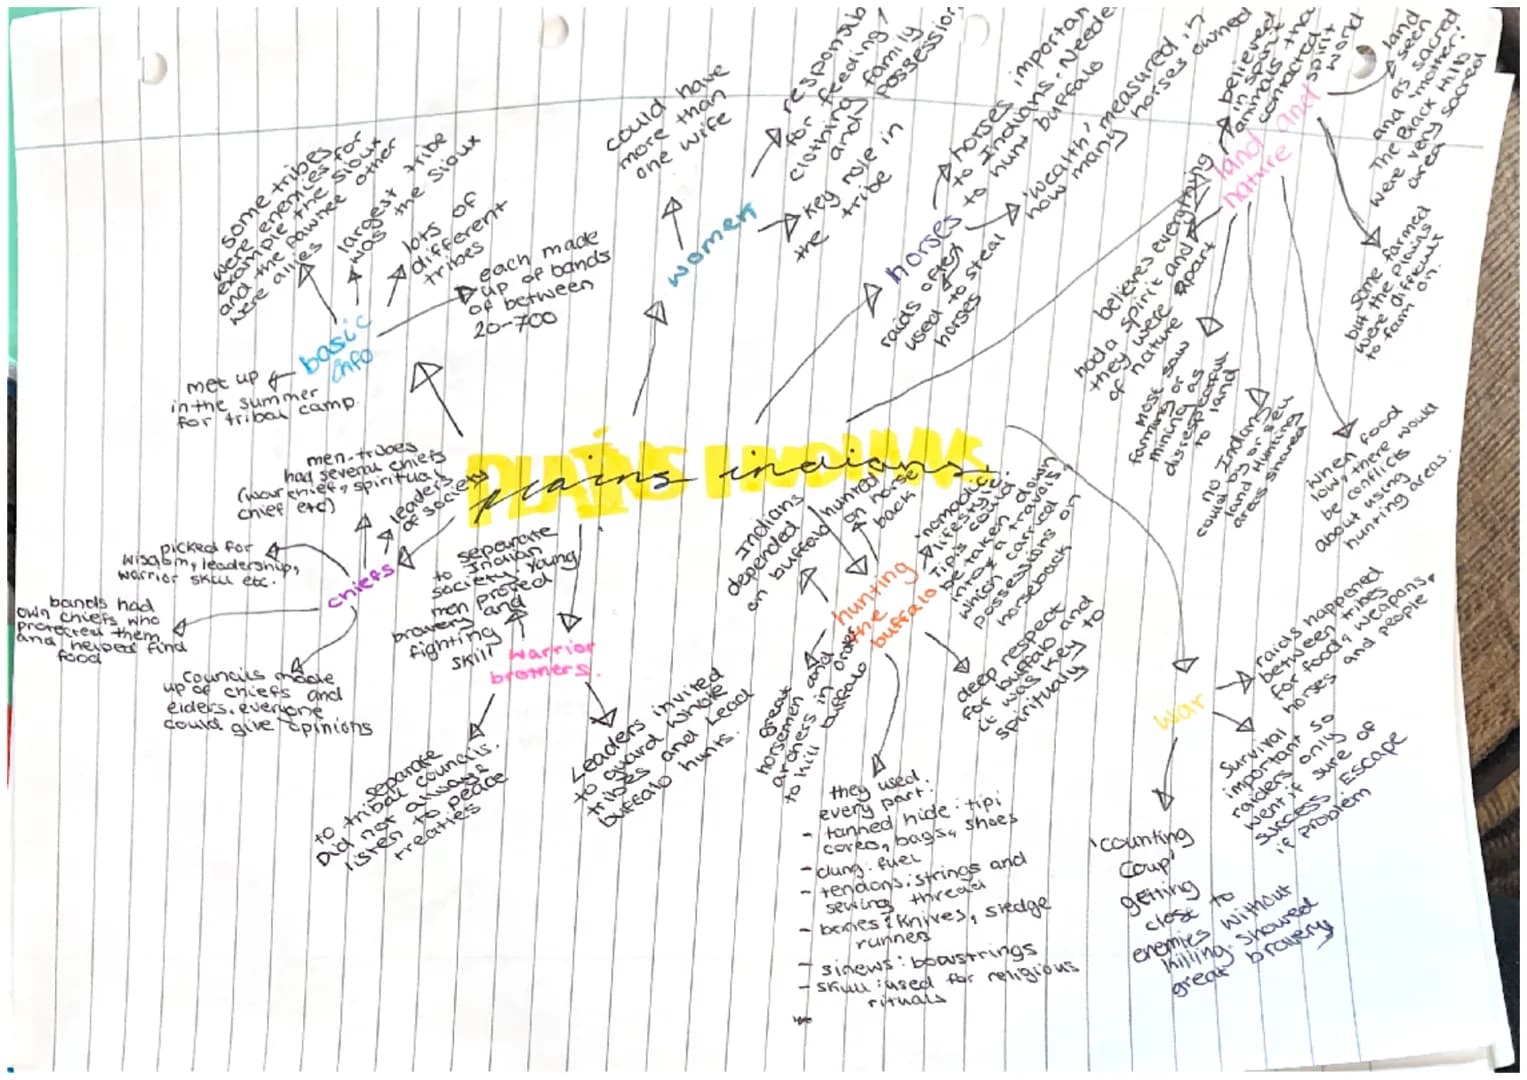 PLAINS INDIANS
plains indians.
basic
info
some tribes
were enemies for
example the Sioux
and the Pawnee other
were allies
largest tribe
was the Sioux
lots of
different
tribes
each made
up of bands
of between
20-700
met up
in the summer
for tribal camp.
women
could have
more than
one wife
responsib
for feeding,
clothing family
and possession
key role in
the tribe
horses
horses importan
to Indians. Neede
to hunt buffalo
'wealth' measured in
how many horses owned
raids often
used to steal
horses
land and
nature
believed
in spirit
animals tha
connected
spirit
world
land
seen
and as sacred
'mother'.
The Black Hills
were very sacred
area
some farmed
but the plains
were difficult
to farm on.
believes everything
had a spirit and
they were apart
of nature
most saw
farming or
mining as
disrespectful
to land
no Indians
could buy or sell
land. Hunting
areas shared
when food
low, there would
be conflicts
about using
hunting areas.
chiefs
men-tribes
had several chiefs
(war chief, spiritual
chief etc)
leaders
of society
picked for
wisdom, leadership,
warrior skill etc.
bands had
own chiefs who
protected them
and helped find
food
councils made
up of chiefs and
elders. everyone
could give opinions
warrior
brothers.
separate
to Indian
society. Young
men proved
bravery and
fighting
skill
separate
to tribal councils.
Did not always
listen to peace
treaties
Leaders invited
to guard whole
tribes and lead
buffalo hunts.
hunting
the
buffalo
Indians
depended
on buffalo
hunted
on horse
back
'nomadic'
lifestyle.
Tipis could
be taken down
into a travois,
which carried
possessions on
horseback
deep respect
for buffalo and
it was key to
spiritually
great
horsemen and
archers in order
to kill buffalo
they used
every part:
- tanned hide: tipi
covers, bags, shoes
- dung: fuel
- tendions: strings and
sewing thread
- bones: knives, sledge
runners
- sinews: bowstrings
- skull: used for religious
rituals
-
war
raids happened
between tribes
for food, weapons,
horses and people
Survival
important so
raiders only
went if sure of
success. Escape
if problem
'counting
coup'
getting
close to
enemies without
killing. showed
great bravery